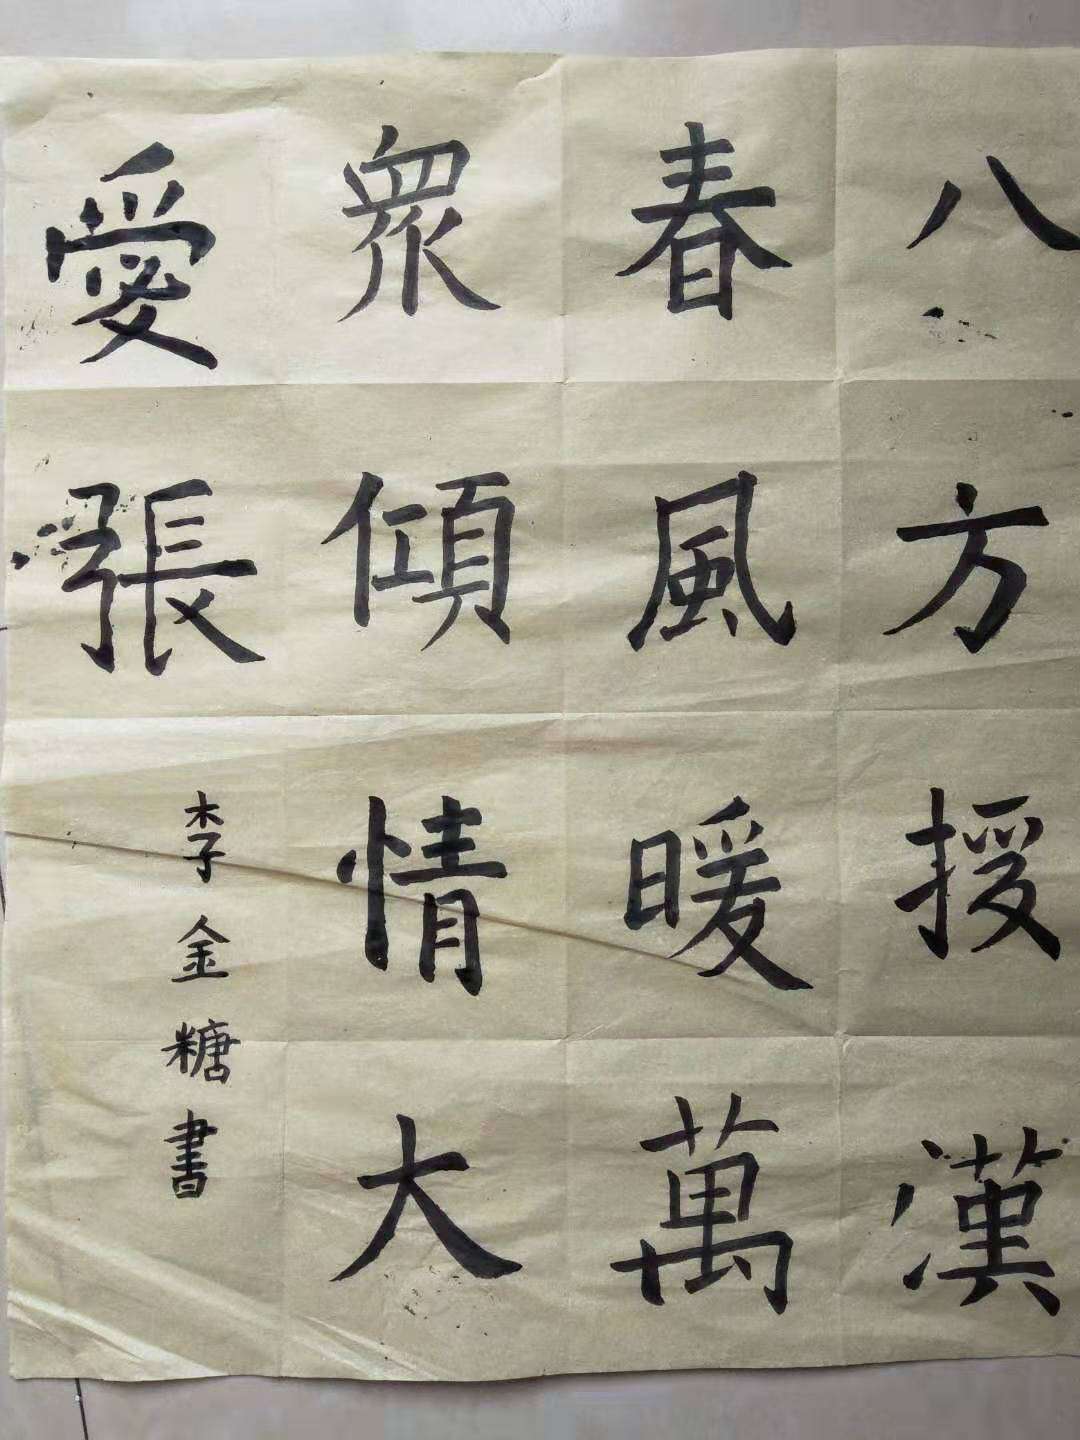 八方授漢
春風暖萬
眾傾情大
愛張
李金糖書